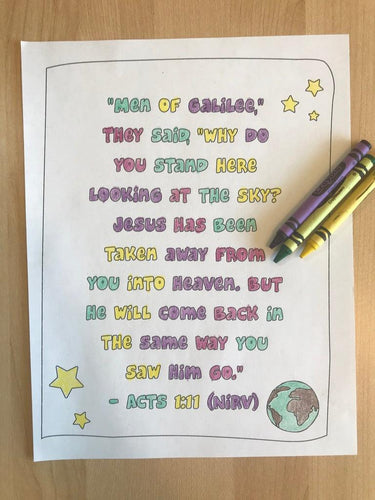 "Men of Galilee,"
They said, "Why do
you stand here
looking at the sky?
Jesus has been
taken away from
you into heaven. But
he will come back in
the same way you
saw him go."
- Acts 1:11 (NIRV)